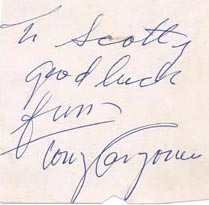 To Scotty
good luck
from
Tony